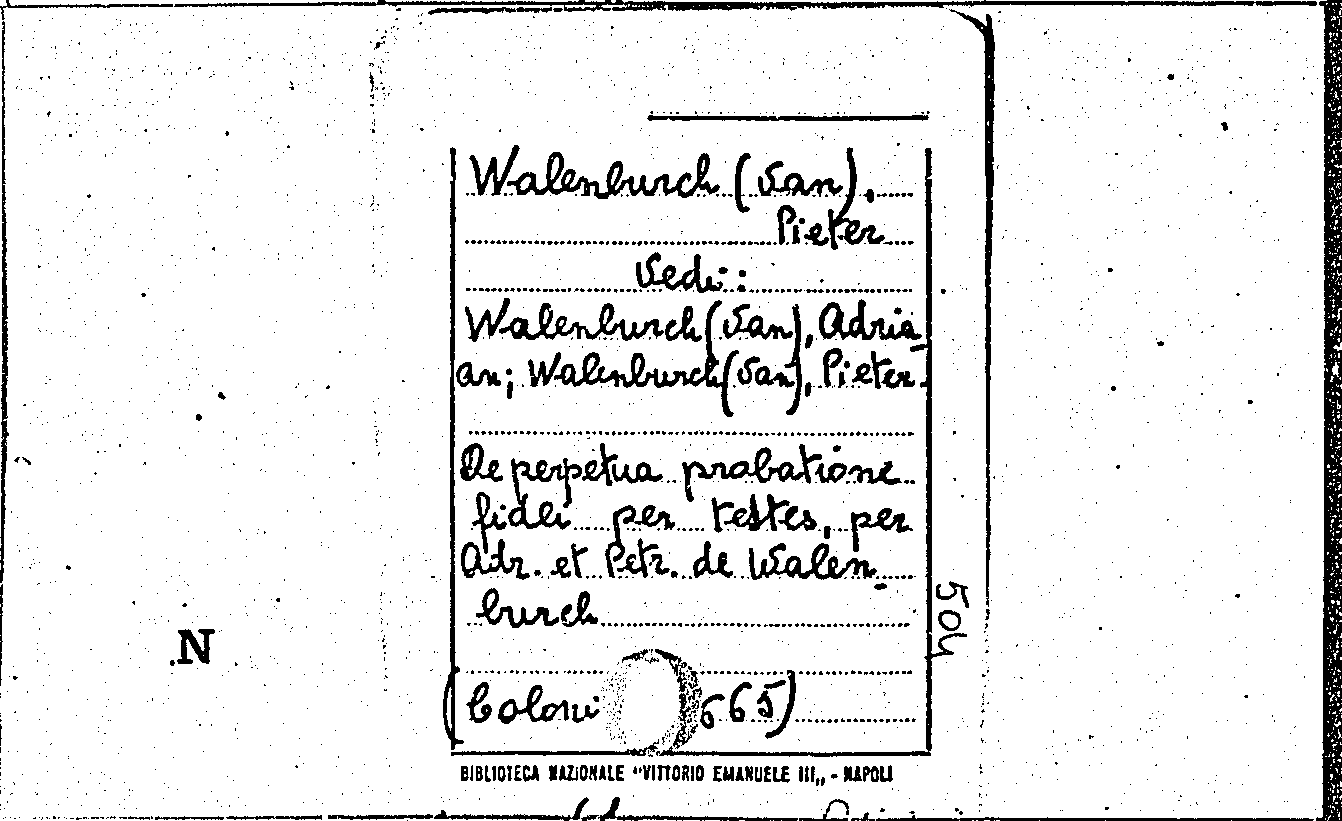 Walenburch (Van),
Pieter
Vedi:
Walenburch (Van), Adria-
an; Walenburch (Van), Pieter.
De perpetua probatione
fidei per testes, per
Adr. et Petr. de Walen-
burch
(Coloni 665)
504
N
BIBLIOTECA NAZIONALE "VITTORIO EMANUELE III,, - NAPOLI